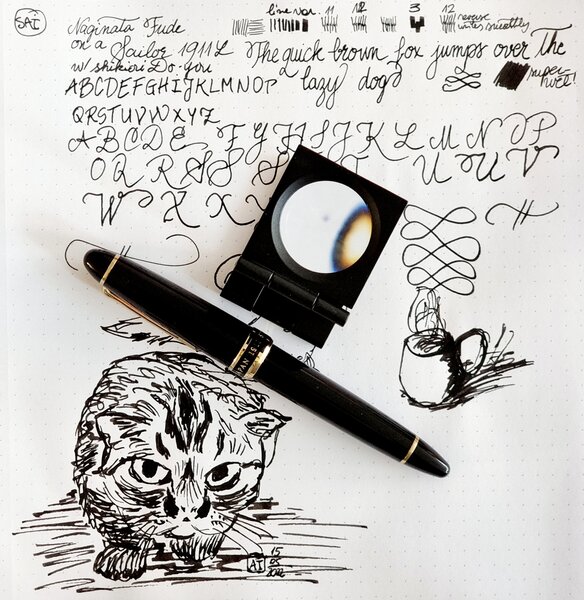 SAI
line var. 11 12 3 12 reverse
writes smoothly
Naginata Fude
on a Sailor 1911L The quick brown fox jumps over the
w/ shikiori Do-you lazy dog super wet!
ABCDEFGHIJKLMNOP
QRSTUVWXYZ
A B C D E F G H I J K L M N O P
O Q R S S T U U V
W X X Y
AI 15
05
2022